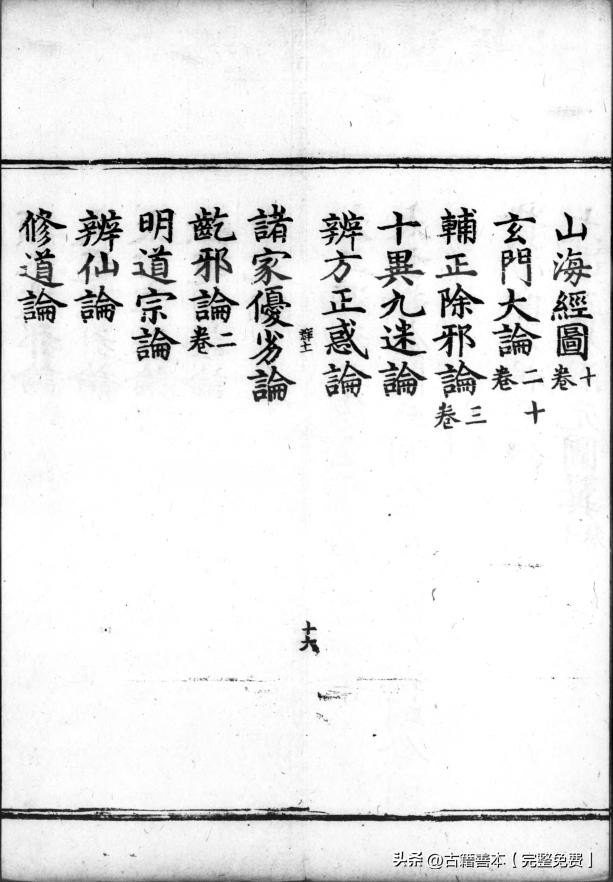 山海經圖十卷
玄門大論二十卷
輔正除邪論三卷
十異九迷論
辨方正惑論
十六
諸家優劣論
齕邪論二卷
明道宗論
辨仙論
修道論
头条 @古籍善本【完整免费】